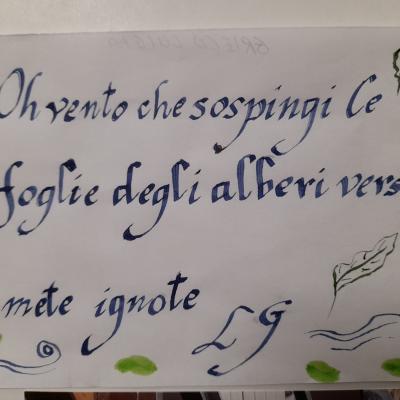 Oh vento che sospingi le
foglie degli alberi vers
mete ignote
LG